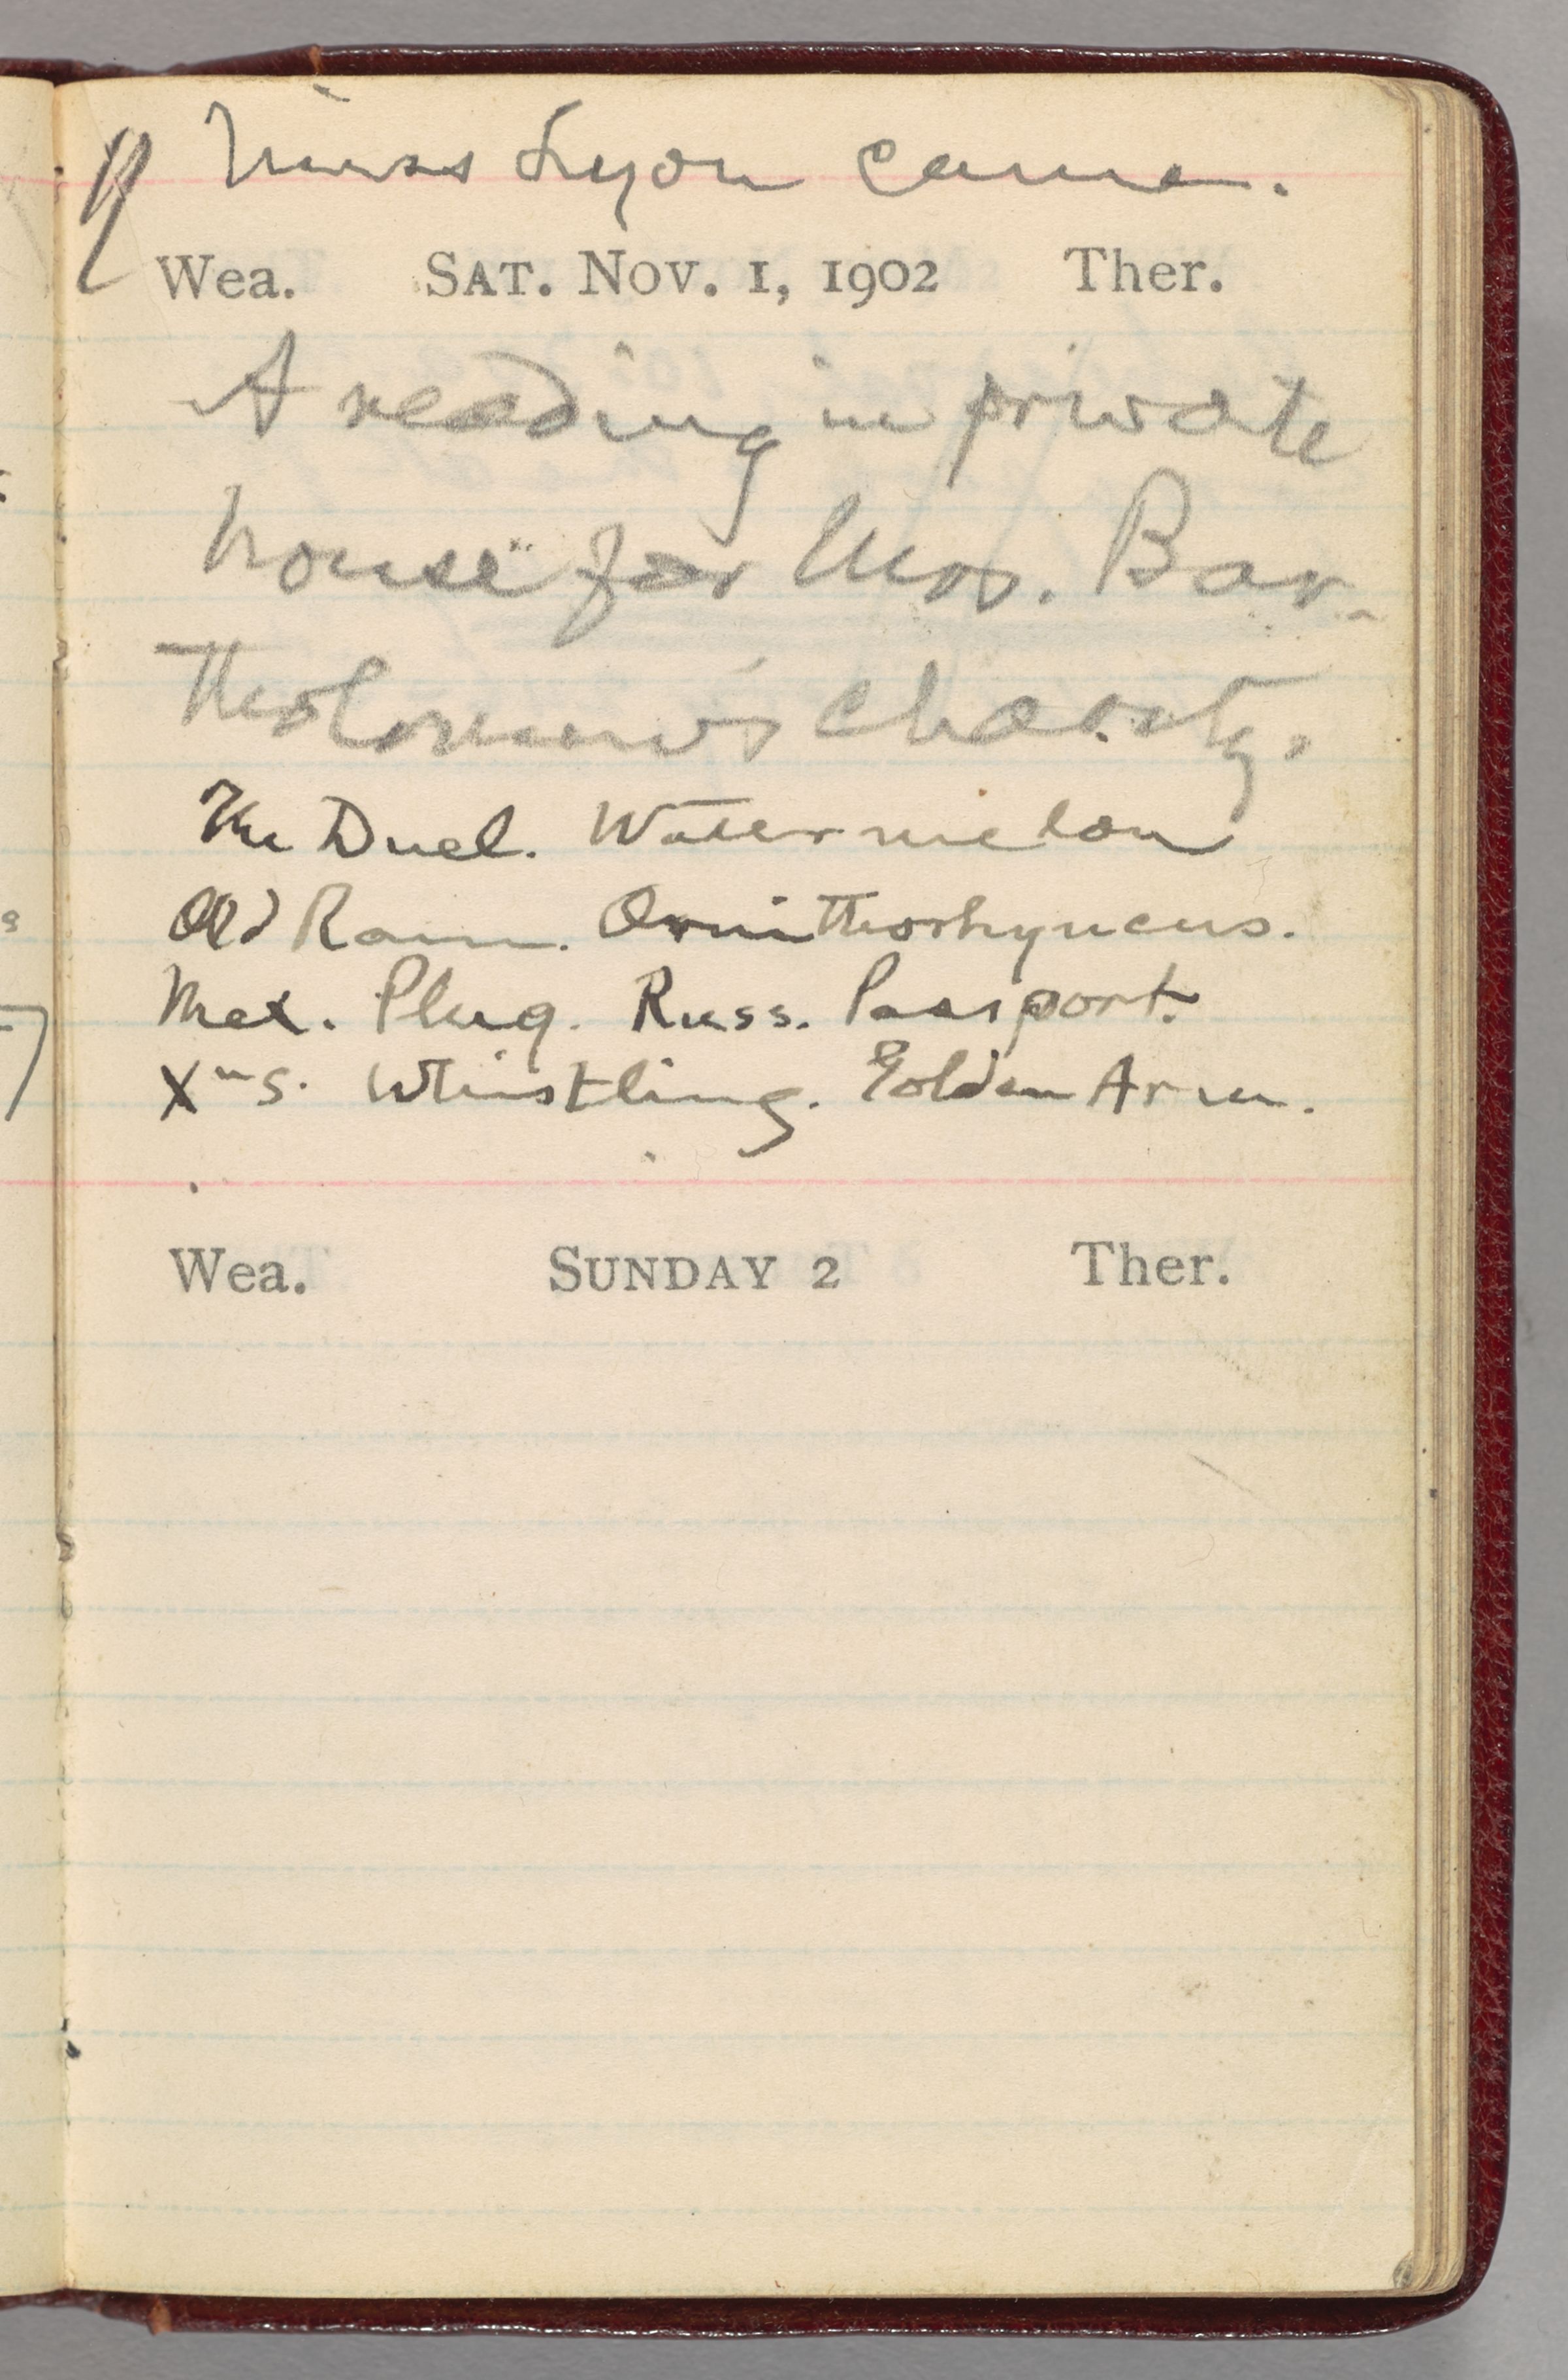 Miss Lyon came.
Wea. SAT. NOV. 1, 1902 Ther.
A reading in private
house for Mrs. Bar-
tholomew's charity.
The Duel. Watermelon
Old Ram. Ornithorhyncus.
Mex. Plug. Russ. Passport.
Xn S. Whistling. Golden Arm.
Wea. SUNDAY 2 Ther.